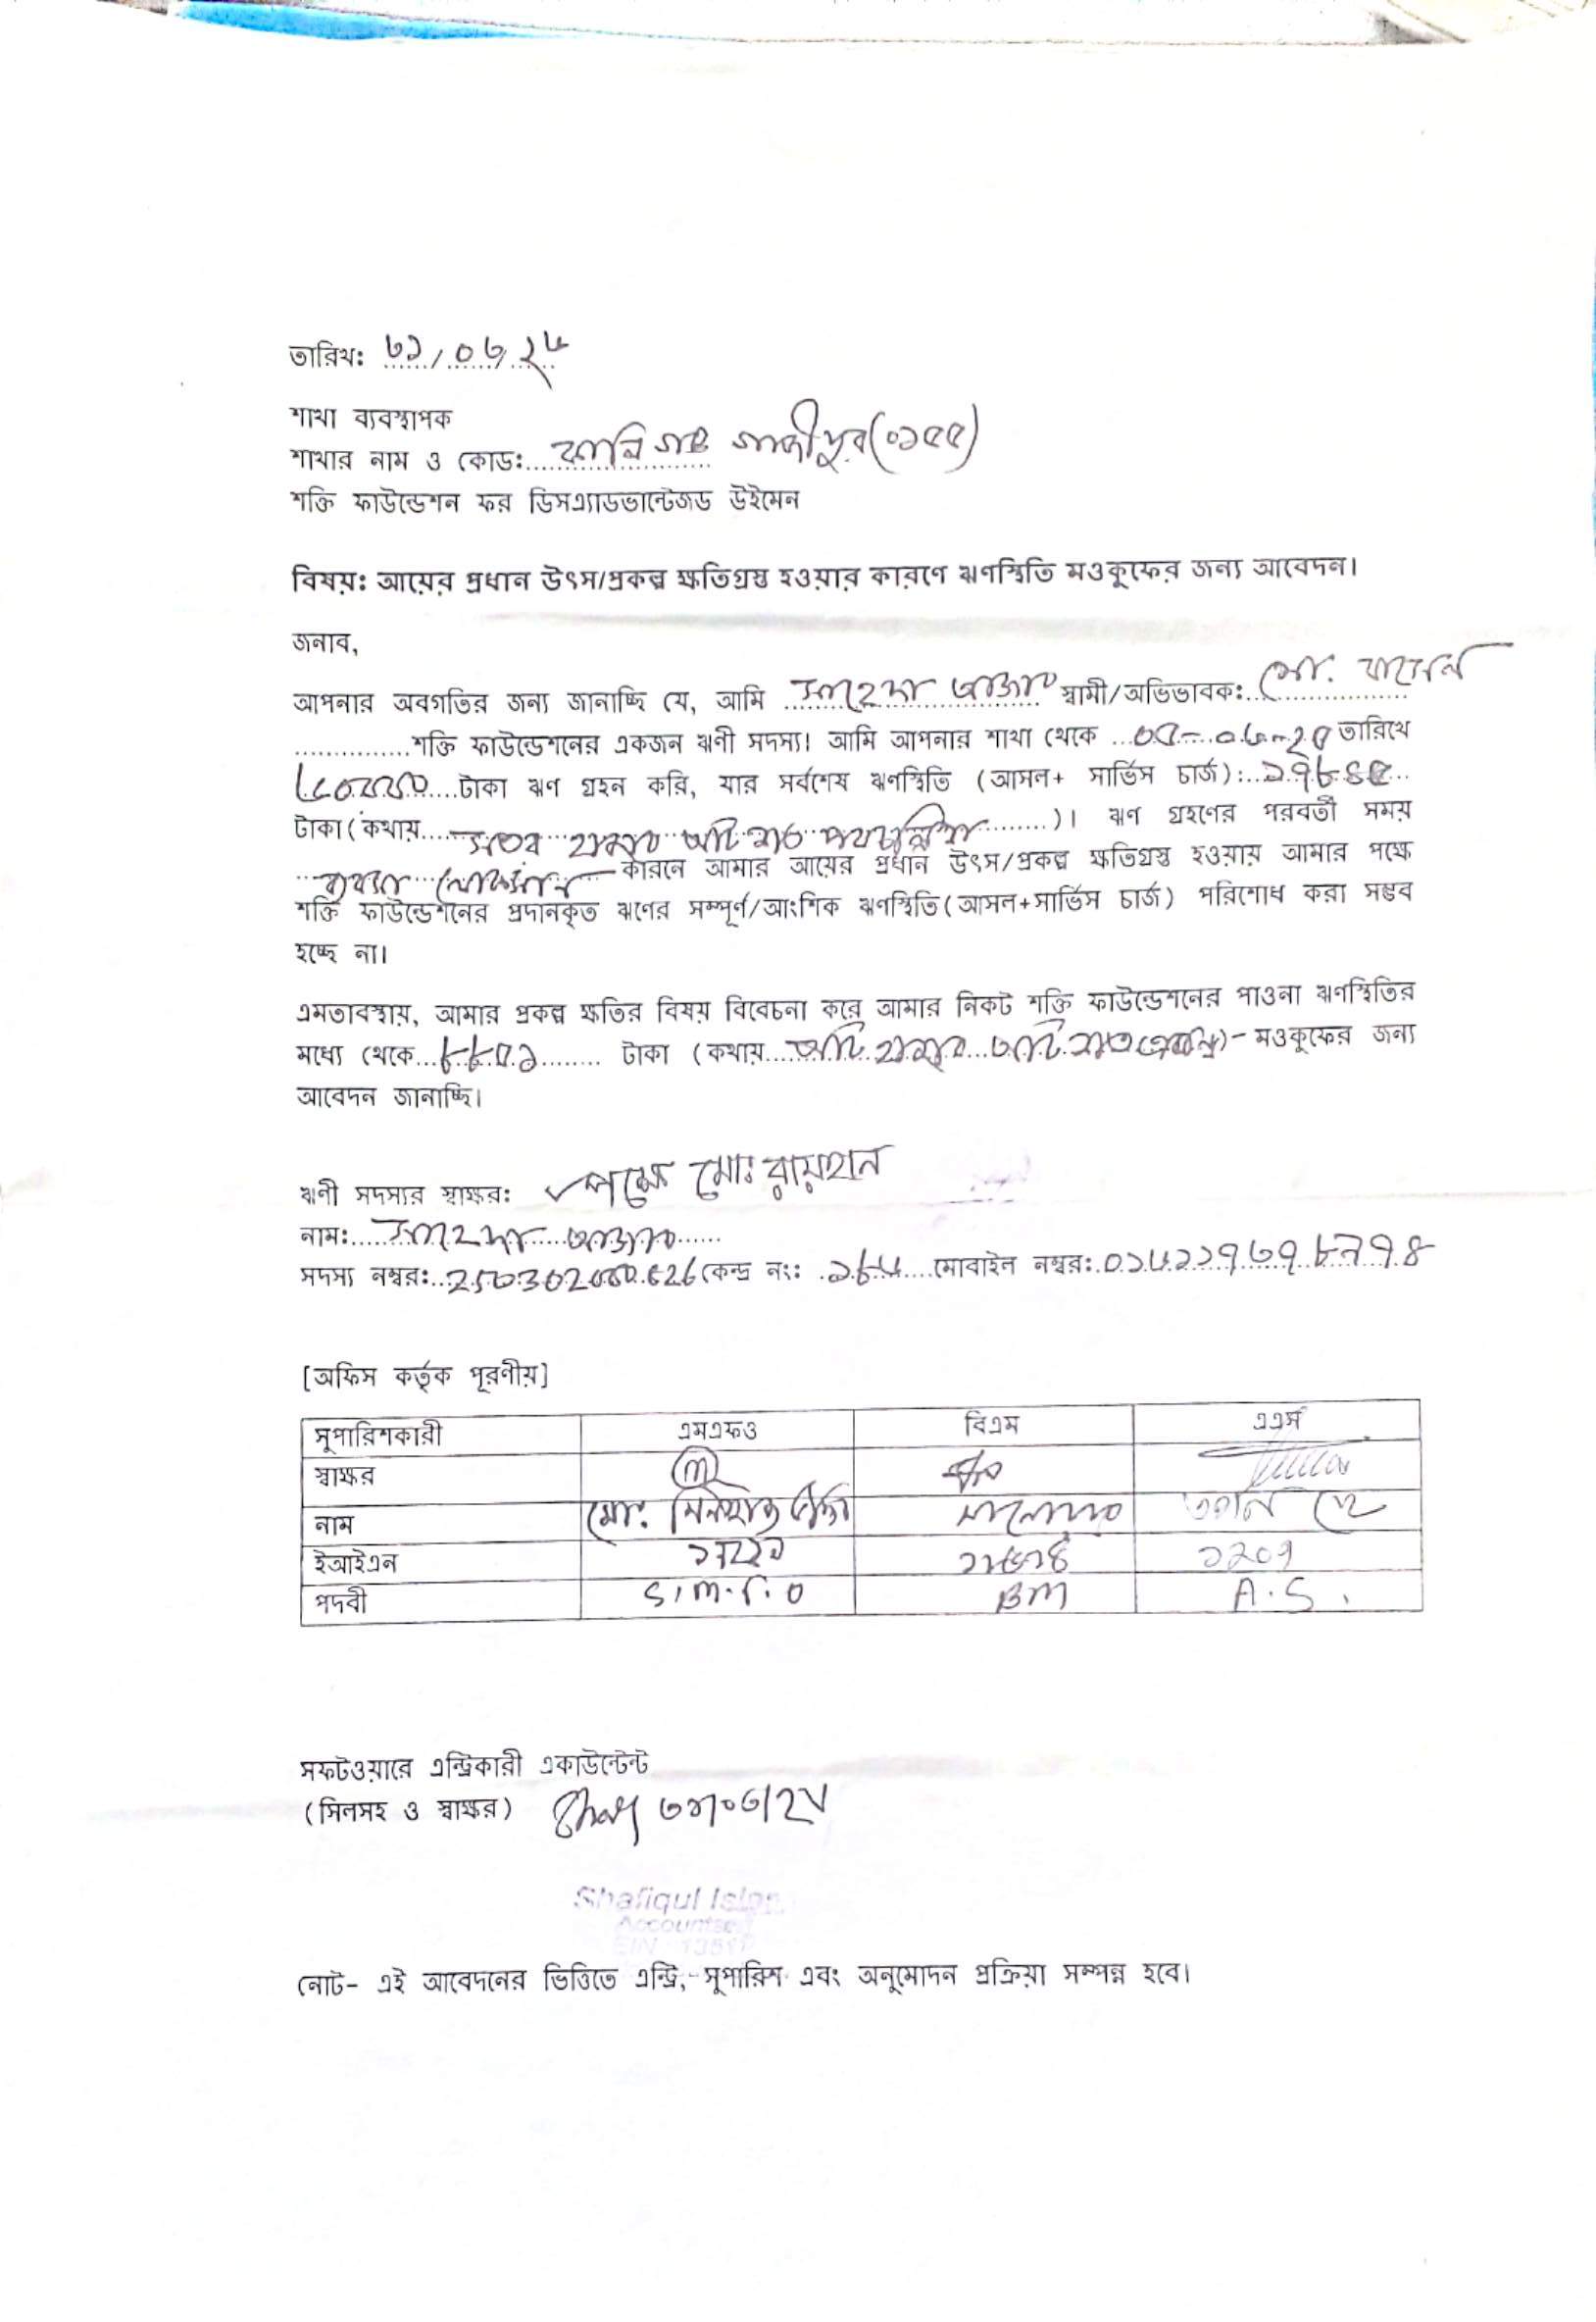 তারিখ: ৩১/০৩/২৬
শাখা ব্যবস্থাপক
শাখার নাম ও কোড: কালিগঞ্জ গাজীপুর(০১৫৫)
শক্তি ফাউন্ডেশন ফর ডিসএ্যাডভান্টেজড উইমেন
বিষয়: আয়ের প্রধান উৎস/প্রকল্প ক্ষতিগ্রস্ত হওয়ার কারণে ঋণস্থিতি মওকুফের জন্য আবেদন।
জনাব,
আপনার অবগতির জন্য জানাচ্ছি যে, আমি আক্তার স্বামী/অভিভাবক: মো.
শক্তি ফাউন্ডেশনের একজন ঋণী সদস্য। আমি আপনার শাখা থেকে তারিখে
টাকা ঋণ গ্রহন করি, যার সর্বশেষ ঋণস্থিতি (আসল+ সার্ভিস চার্জ): ১৭৮৪৫
টাকা(কথায় সতের হাজার আট শত পয়তাল্লিশ)। ঋণ গ্রহণের পরবর্তী সময়
ব্যবসা লোকসান কারনে আমার আয়ের প্রধান উৎস/প্রকল্প ক্ষতিগ্রস্ত হওয়ায় আমার পক্ষে
শক্তি ফাউন্ডেশনের প্রদানকৃত ঋণের সম্পূর্ণ/আংশিক ঋণস্থিতি(আসল+সার্ভিস চার্জ) পরিশোধ করা সম্ভব
হচ্ছে না।
এমতাবস্থায়, আমার প্রকল্প ক্ষতির বিষয় বিবেচনা করে আমার নিকট শক্তি ফাউন্ডেশনের পাওনা ঋণস্থিতির
মধ্যে থেকে টাকা (কথায় আট হাজার আট শত)- মওকুফের জন্য
আবেদন জানাচ্ছি।
ঋণী সদস্যর স্বাক্ষর: পক্ষে মোঃ রায়হান
নাম: আক্তার
সদস্য নম্বর: কেন্দ্র নং: মোবাইল নম্বর:
[অফিস কর্তৃক পূরণীয়]
সুপারিশকারী এমএফও বিএম এএস
স্বাক্ষর
নাম মো.
ইআইএন ১২০৭
পদবী S.M.F.O BM A.S.
সফটওয়ারে এন্ট্রিকারী একাউন্টেন্ট
(সিলসহ ও স্বাক্ষর) ৩১/০৩/২৬
Shafiqul Islam
Accountant
EIN
নোট- এই আবেদনের ভিত্তিতে এন্ট্রি, সুপারিশ এবং অনুমোদন প্রক্রিয়া সম্পন্ন হবে।